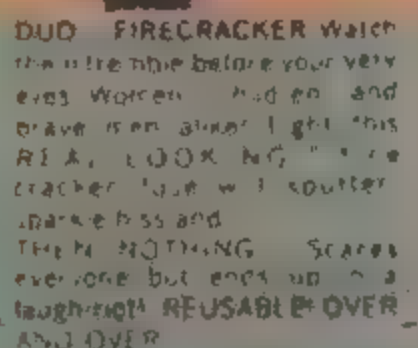 DUD FIRECRACKER Watch
the before your very
eyes Women and
brave men alike! Light this
REAL LOOKING
cracker fuse will sputter
hiss and
THEN NOTHING Scares
everyone but ends up in a
laugh-riot! REUSABLE OVER
AND OVER